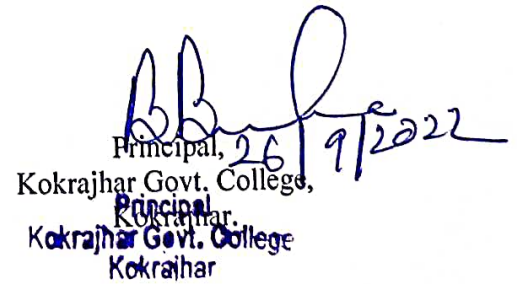 26/9/2022
Principal,
Kokrajhar Govt. College,
Kokrajhar.
Principal
Kokrajhar Govt. College
Kokrajhar